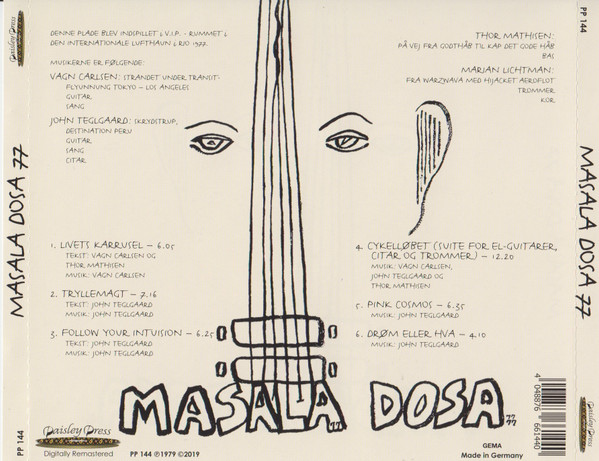 Paisley Press
MASALA DOSA 77
PP 144
DENNE PLADE BLEV INDSPILLET I V.I.P. - RUMMET I
DEN INTERNATIONALE LUFTHAVN I RIO 1977.
MUSIKERNE ER FØLGENDE:
VAGN CARLSEN: STRANDET UNDER TRANSIT-
FLYVNING TOKYO – LOS ANGELES
GUITAR
SANG
JOHN TEGLGAARD: SKRYDSTRUP,
DESTINATION PERU
GUITAR
SANG
CITAR
THOR MATHISEN:
PÅ VEJ FRA GODTHÅB TIL KAP DET GODE HÅB
BAS
MARIAN LICHTMAN:
FRA WARZNAVA MED HIJACKET AEROFLOT
TROMMER
KOR
1. LIVETS KARRUSEL – 6.05
TEKST: VAGN CARLSEN OG
THOR MATHISEN
MUSIK: VAGN CARLSEN
2. TRYLLEMAGT – 7.16
TEKST: JOHN TEGLGAARD
MUSIK: JOHN TEGLGAARD
3. FOLLOW YOUR INTUISION – 6.25
TEKST: JOHN TEGLGAARD
MUSIK: JOHN TEGLGAARD
4. CYKELLØBET (SUITE FOR EL-GUITARER,
CITAR OG TROMMER) – 12.20
MUSIK: VAGN CARLSEN,
JOHN TEGLGAARD OG
THOR MATHISEN
5. PINK COSMOS – 6.35
MUSIK: JOHN TEGLGAARD
6. DRØM ELLER HVA – 4.10
MUSIK: JOHN TEGLGAARD
MASALA 77 DOSA 77 77
Paisley Press
Digitally Remastered
PP 144 ℗1979 ©2019
GEMA
Made in Germany
4 048876 661440
PP 144
MASALA DOSA 77
Paisley Press